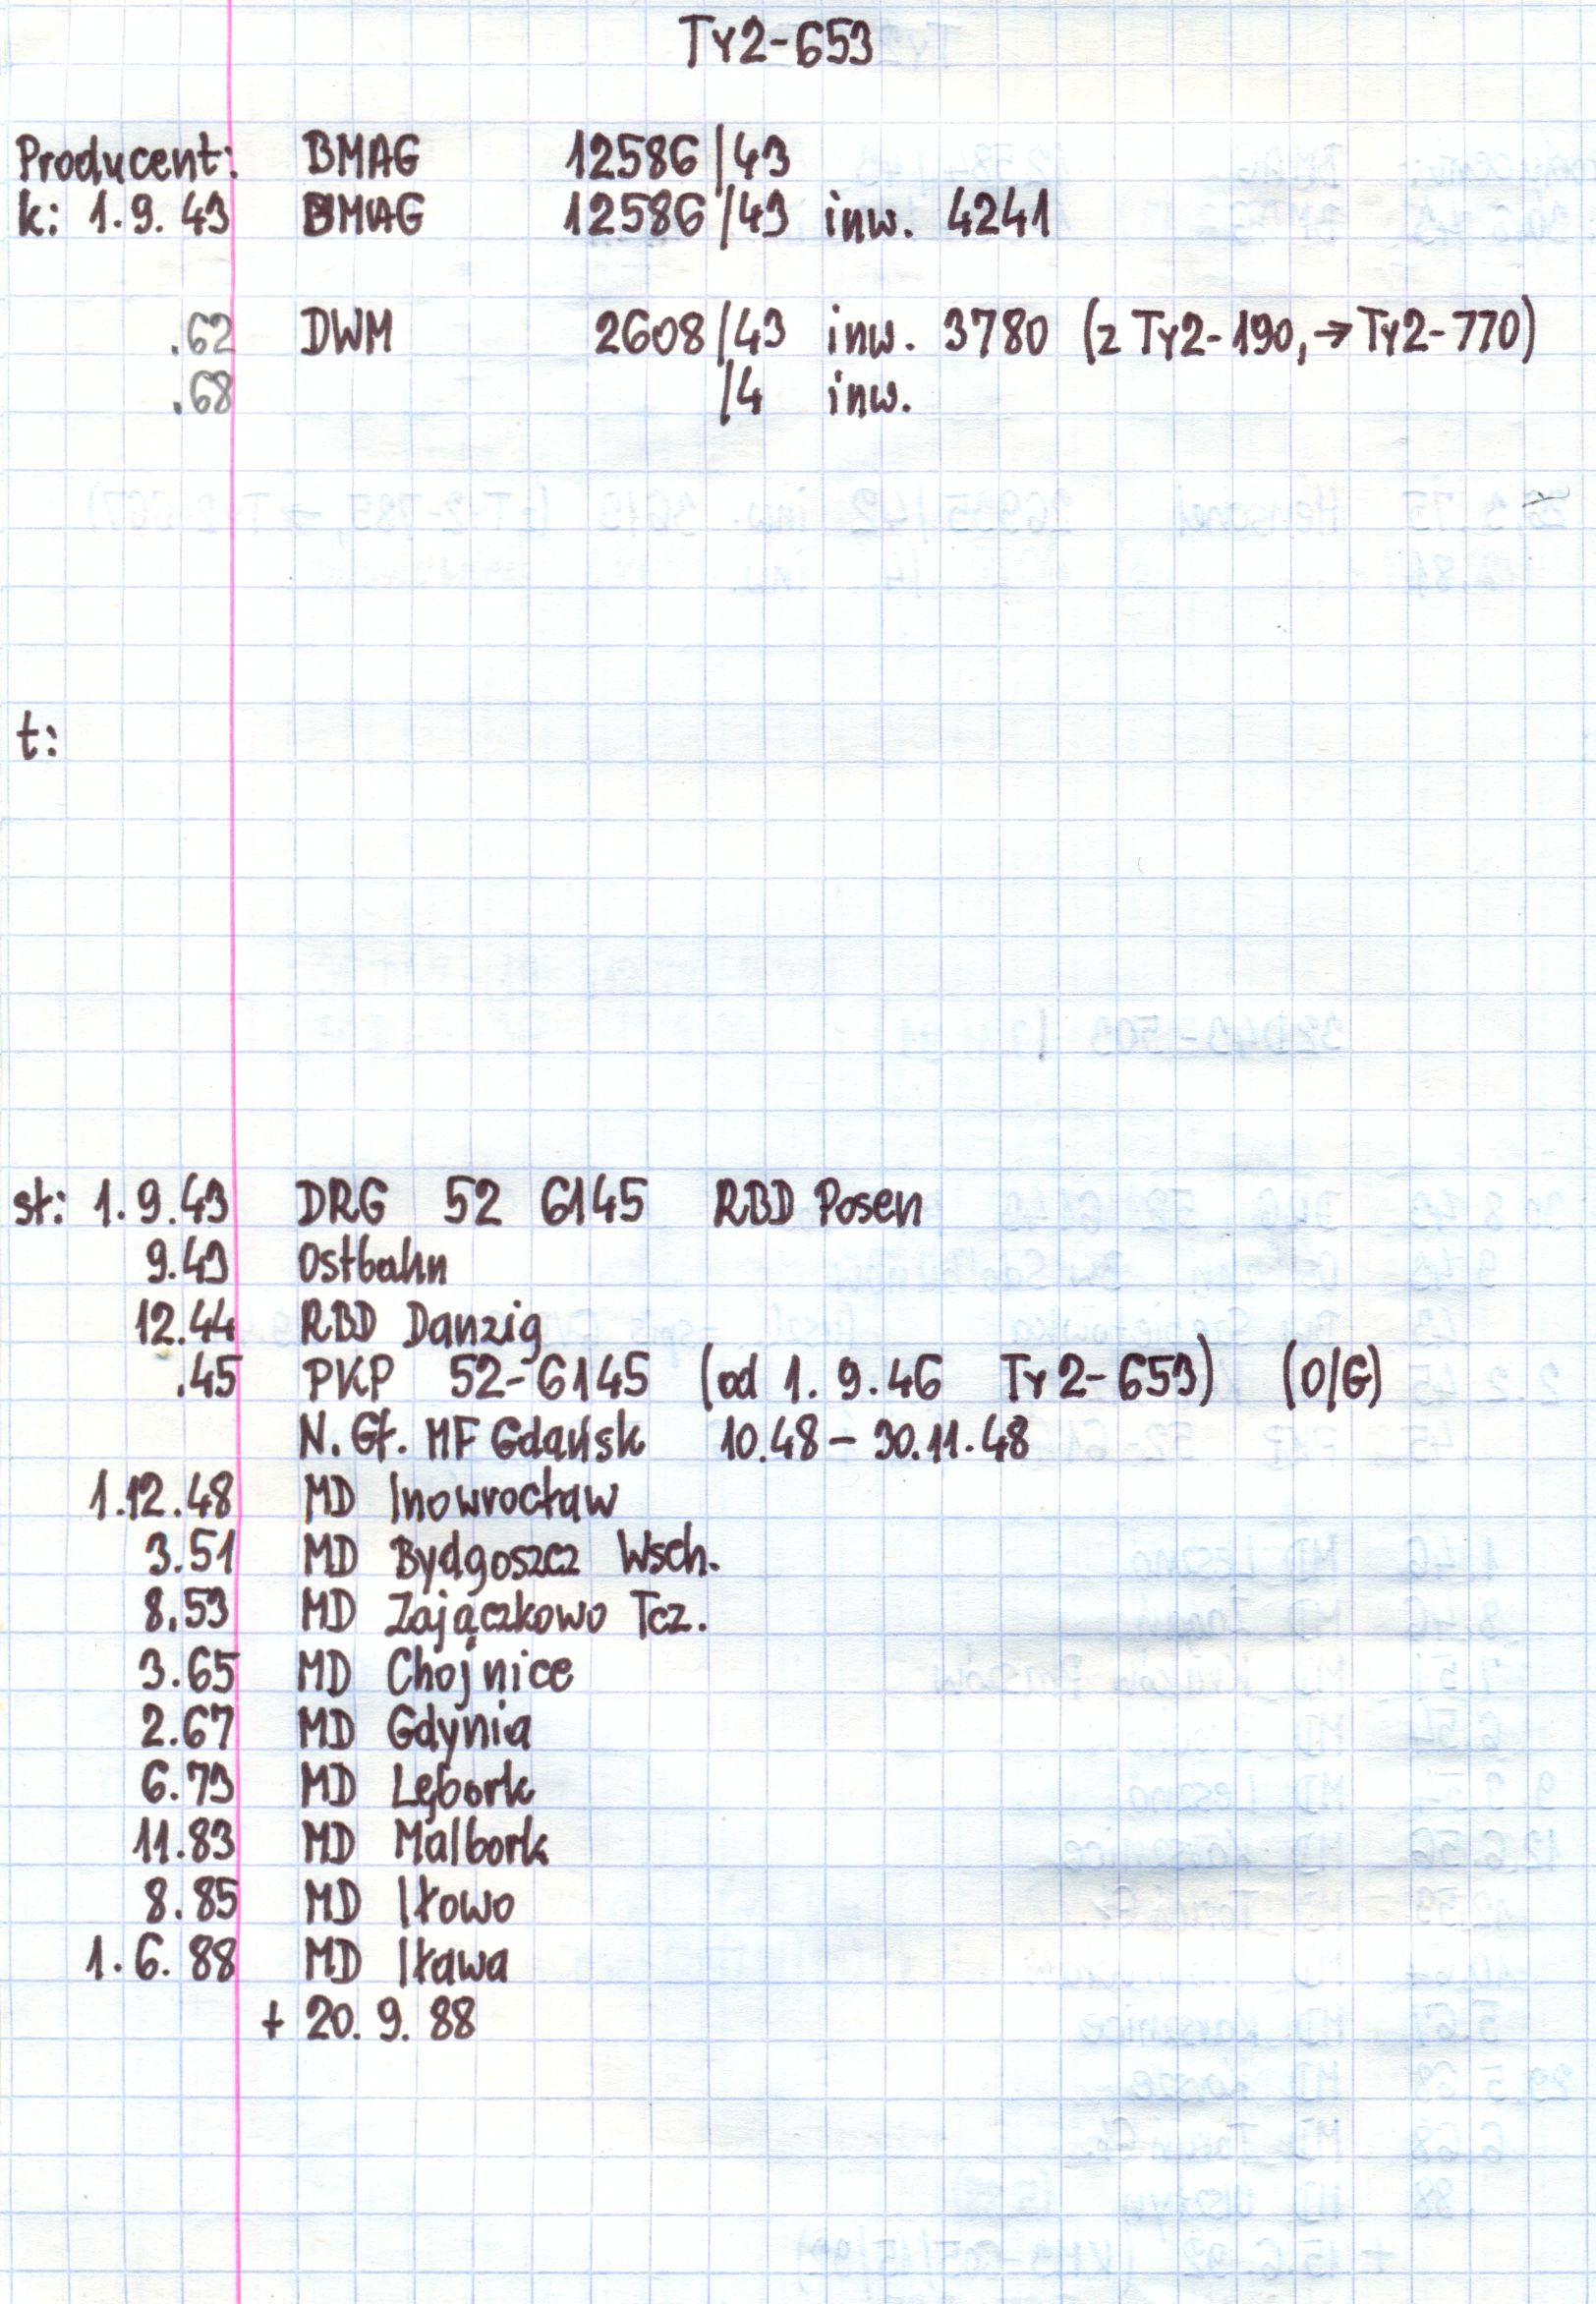 Ty2-653
Producent: BMAG 12586/43
k: 1.9.43 BMAG 12586/43 inw. 4241
.62 DWM 2608/43 inw. 3780 (z Ty2-190, → Ty2-770)
.68 /4 inw.
t:
st: 1.9.43 DRG 52 6145 RBD Posen
9.43 Ostbahn
12.44 RBD Danzig
.45 PKP 52-6145 (od 1.9.46 Ty2-653) (O/G)
N. Gł. MF Gdańsk 10.48 - 30.11.48
1.12.48 MD Inowrocław
3.51 MD Bydgoszcz Wsch.
8.53 MD Zajączkowo Tcz.
3.65 MD Chojnice
2.67 MD Gdynia
6.73 MD Lębork
11.83 MD Malbork
8.85 MD Iłowo
1.6.88 MD Iława
+ 20.9.88